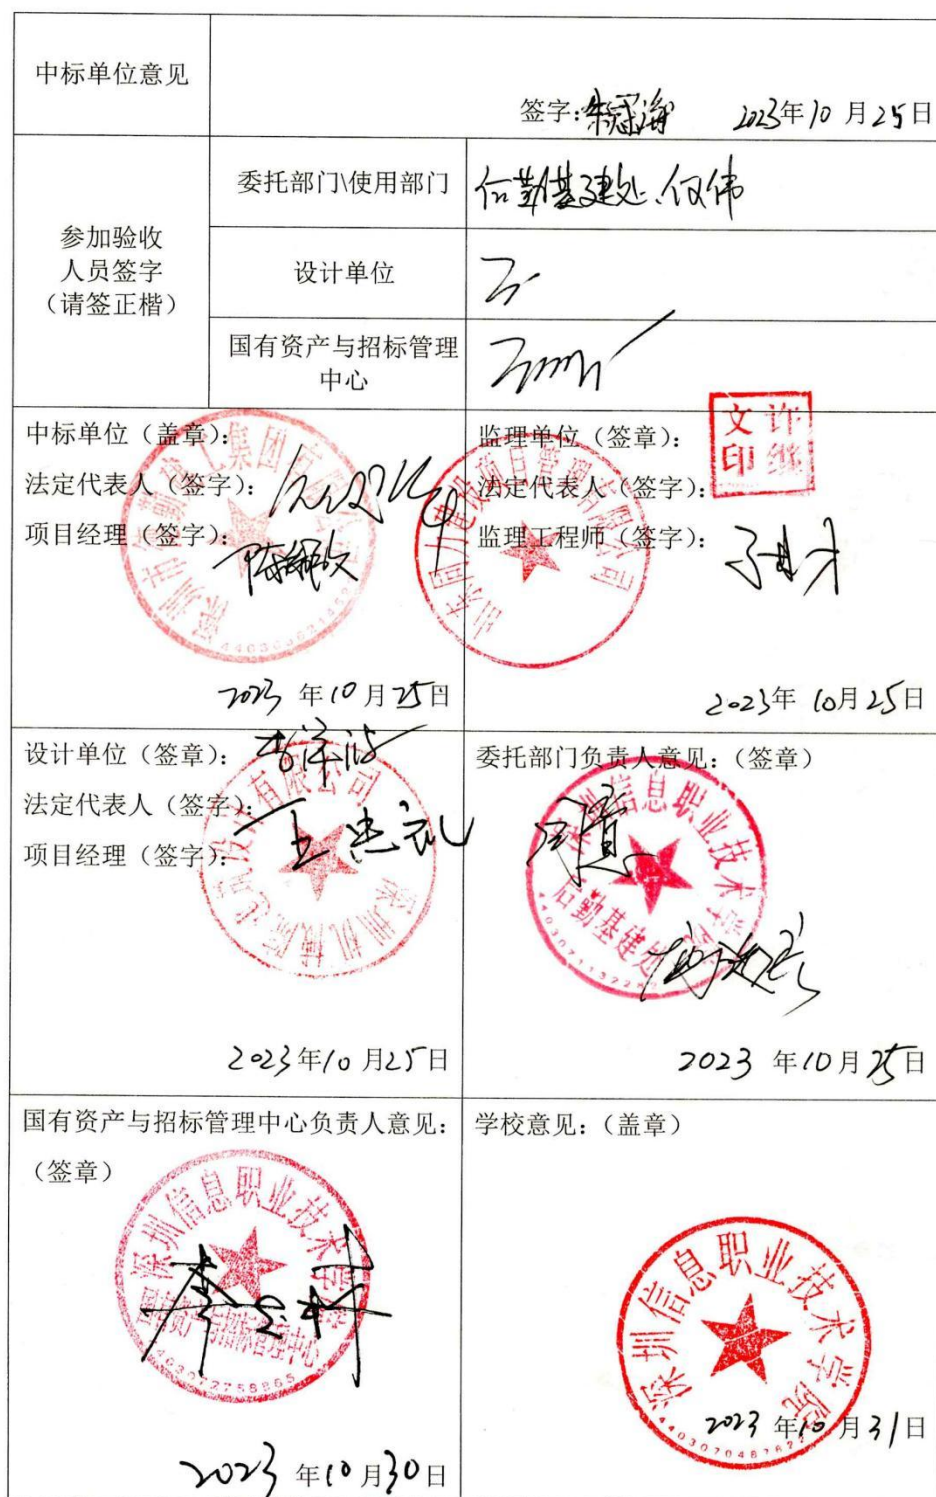 中标单位意见
签字: 2023年10月25日
参加验收
人员签字
（请签正楷）
委托部门\使用部门
后勤基建处、何伟
设计单位
国有资产与招标管理
中心
中标单位（盖章）：
法定代表人（签字）：
项目经理（签字）：
2023 年10月25日
监理单位（签章）：
法定代表人（签字）：
监理工程师（签字）：
山东同力建设项目管理有限公司
2023年 10月25日
设计单位（签章）：
法定代表人（签字）：
项目经理（签字）：
王忠礼
2023年10月25日
委托部门负责人意见：（签章）
深圳信息职业技术学院
后勤基建处
2023 年10月25日
国有资产与招标管理中心负责人意见：
（签章）
深圳信息职业技术学院
国有资产与招标管理中心
2023 年10月30日
学校意见：（盖章）
深圳信息职业技术学院
2023 年10月31日